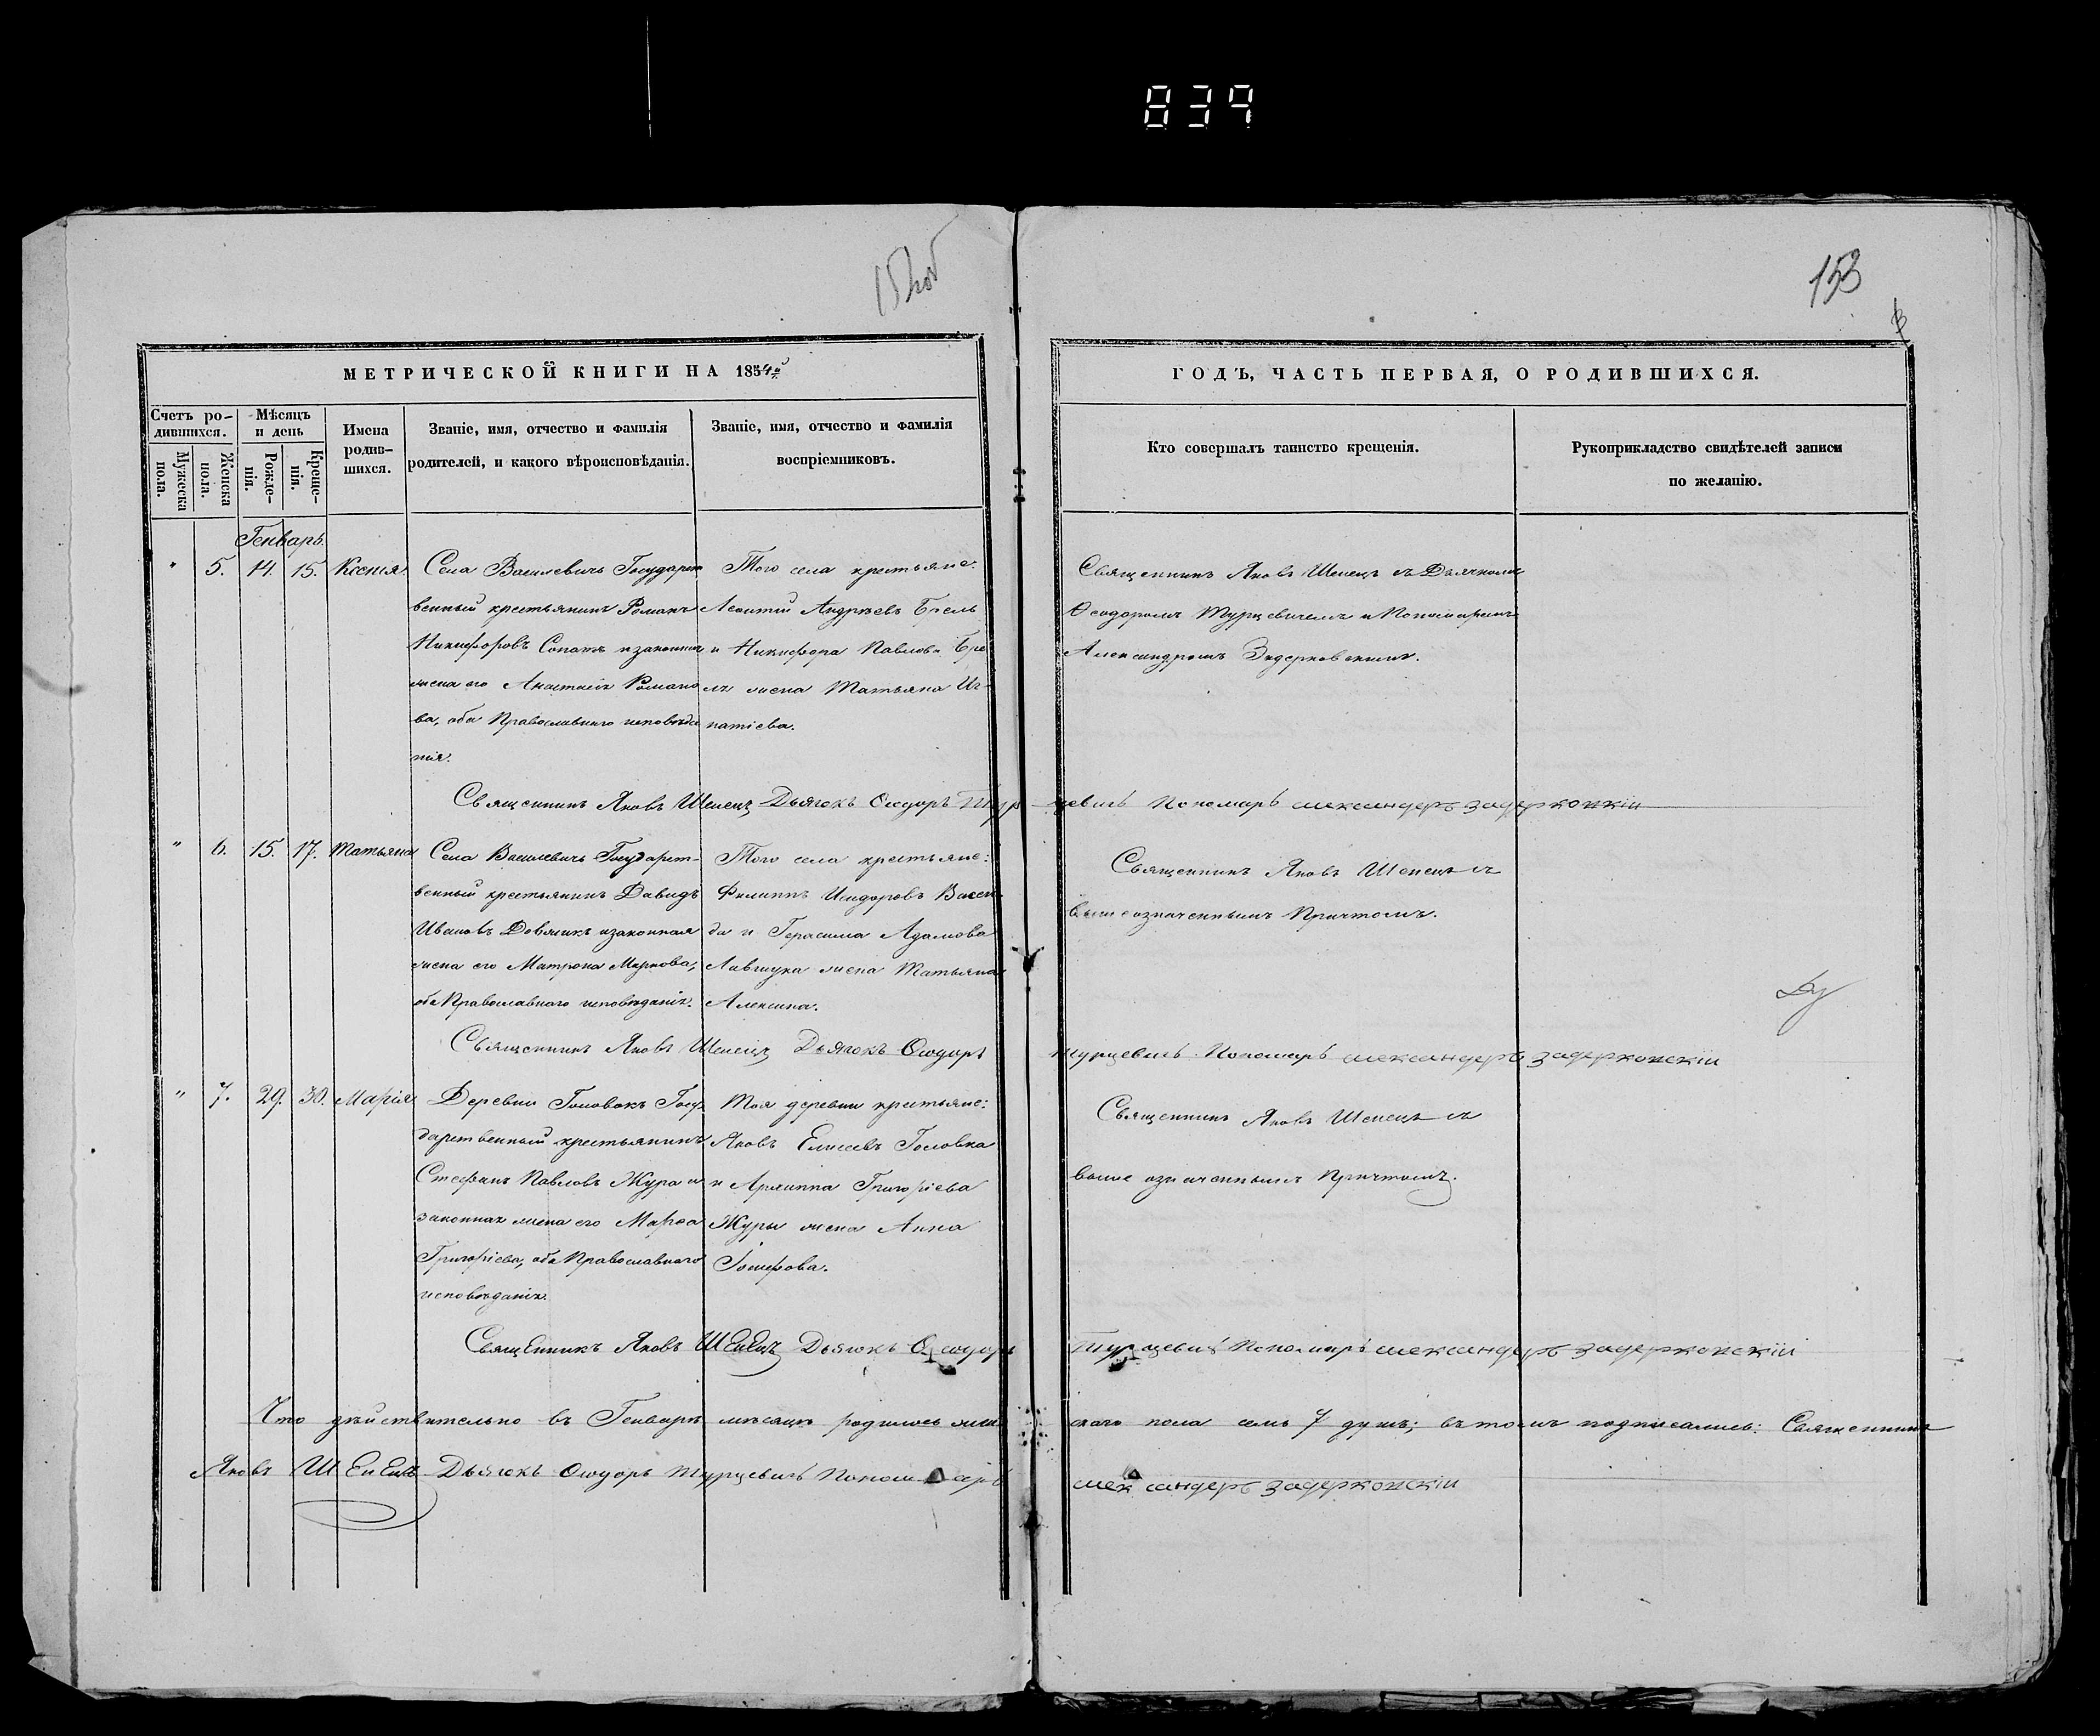 839
152 об
153
МЕТРИЧЕСКОЙ КНИГИ НА 1854й
Счетъ ро-
дившихся.
Мужеска пола.
Женска пола.
Мѣсяцъ
и день
Рожде-
нія.
Креще-
нія.
Имена
родив-
шихся.
Званіе, имя, отчество и фамилія
родителей, и какого вѣроисповѣданія.
Званіе, имя, отчество и фамилія
воспріемниковъ.
ГОДЪ, ЧАСТЬ ПЕРВАЯ, О РОДИВШИХСЯ.
Кто совершалъ таинство крещенія.
Рукоприкладство свидѣтелей записи
по желанію.
Генварь.
" 5. 14. 15. Ксенія.
Села Василевичъ Государст
венный крестьянинъ Романъ
Никифоровъ и законная
жена его Анастасія Романо
ва, оба Православнаго исповѣда
нія.
Того села крестьяне:
Леонтій Андреевъ Брель
и Никифора Павлова Бре
ля жена Татьяна Иг-
натіева.
Священникъ Яковъ Шепецъ съ Дьячкомъ
Ѳеодоромъ Турцевичемъ и Пономаремъ
Александромъ Задерковскимъ.
Священникъ Яковъ Шепецъ Дьячокъ Ѳеодоръ Турцевичъ Пономарь Александеръ Задерковскій
" 6. 15. 17. Татьяна
Села Василевичъ Государст-
венный крестьянинъ Давидъ
Ивановъ и законная
жена его Матрона Маркова,
оба Православнаго исповѣданія.
Того села крестьяне:
Филиппъ Исидоровъ
да и Герасима Адамова
жена Татьяна
Алексина.
Священникъ Яковъ Шепецъ съ
вышеозначеннымъ Причтомъ.
Священникъ Яковъ Шепецъ Дьячокъ Ѳеодоръ Турцевичъ Пономарь Александеръ Задерковскій
" 7. 29. 30. Марія
Деревни Головокъ Госу
дарственный крестьянинъ
Стефанъ Павловъ Жура и
законная жена его Марѳа
Григоріева, оба Православнаго
исповѣданія.
Тоя деревни крестьяне:
Яковъ Елисеевъ Головка
и Архиппа Григоріева
Журы жена Анна
Іосифова.
Священникъ Яковъ Шепецъ съ
выше означеннымъ Причтомъ.
Священникъ Яковъ Шепецъ Дьячокъ Ѳеодоръ Турцевичъ Пономарь Александеръ Задерковскій
Что дѣйствительно въ Генварѣ мѣсяцѣ родилось женскаго пола семь 7 душъ; въ томъ подписались: Священникъ
Яковъ Шепецъ Дьячокъ Ѳеодоръ Турцевичъ Пономарь Александеръ Задерковскій